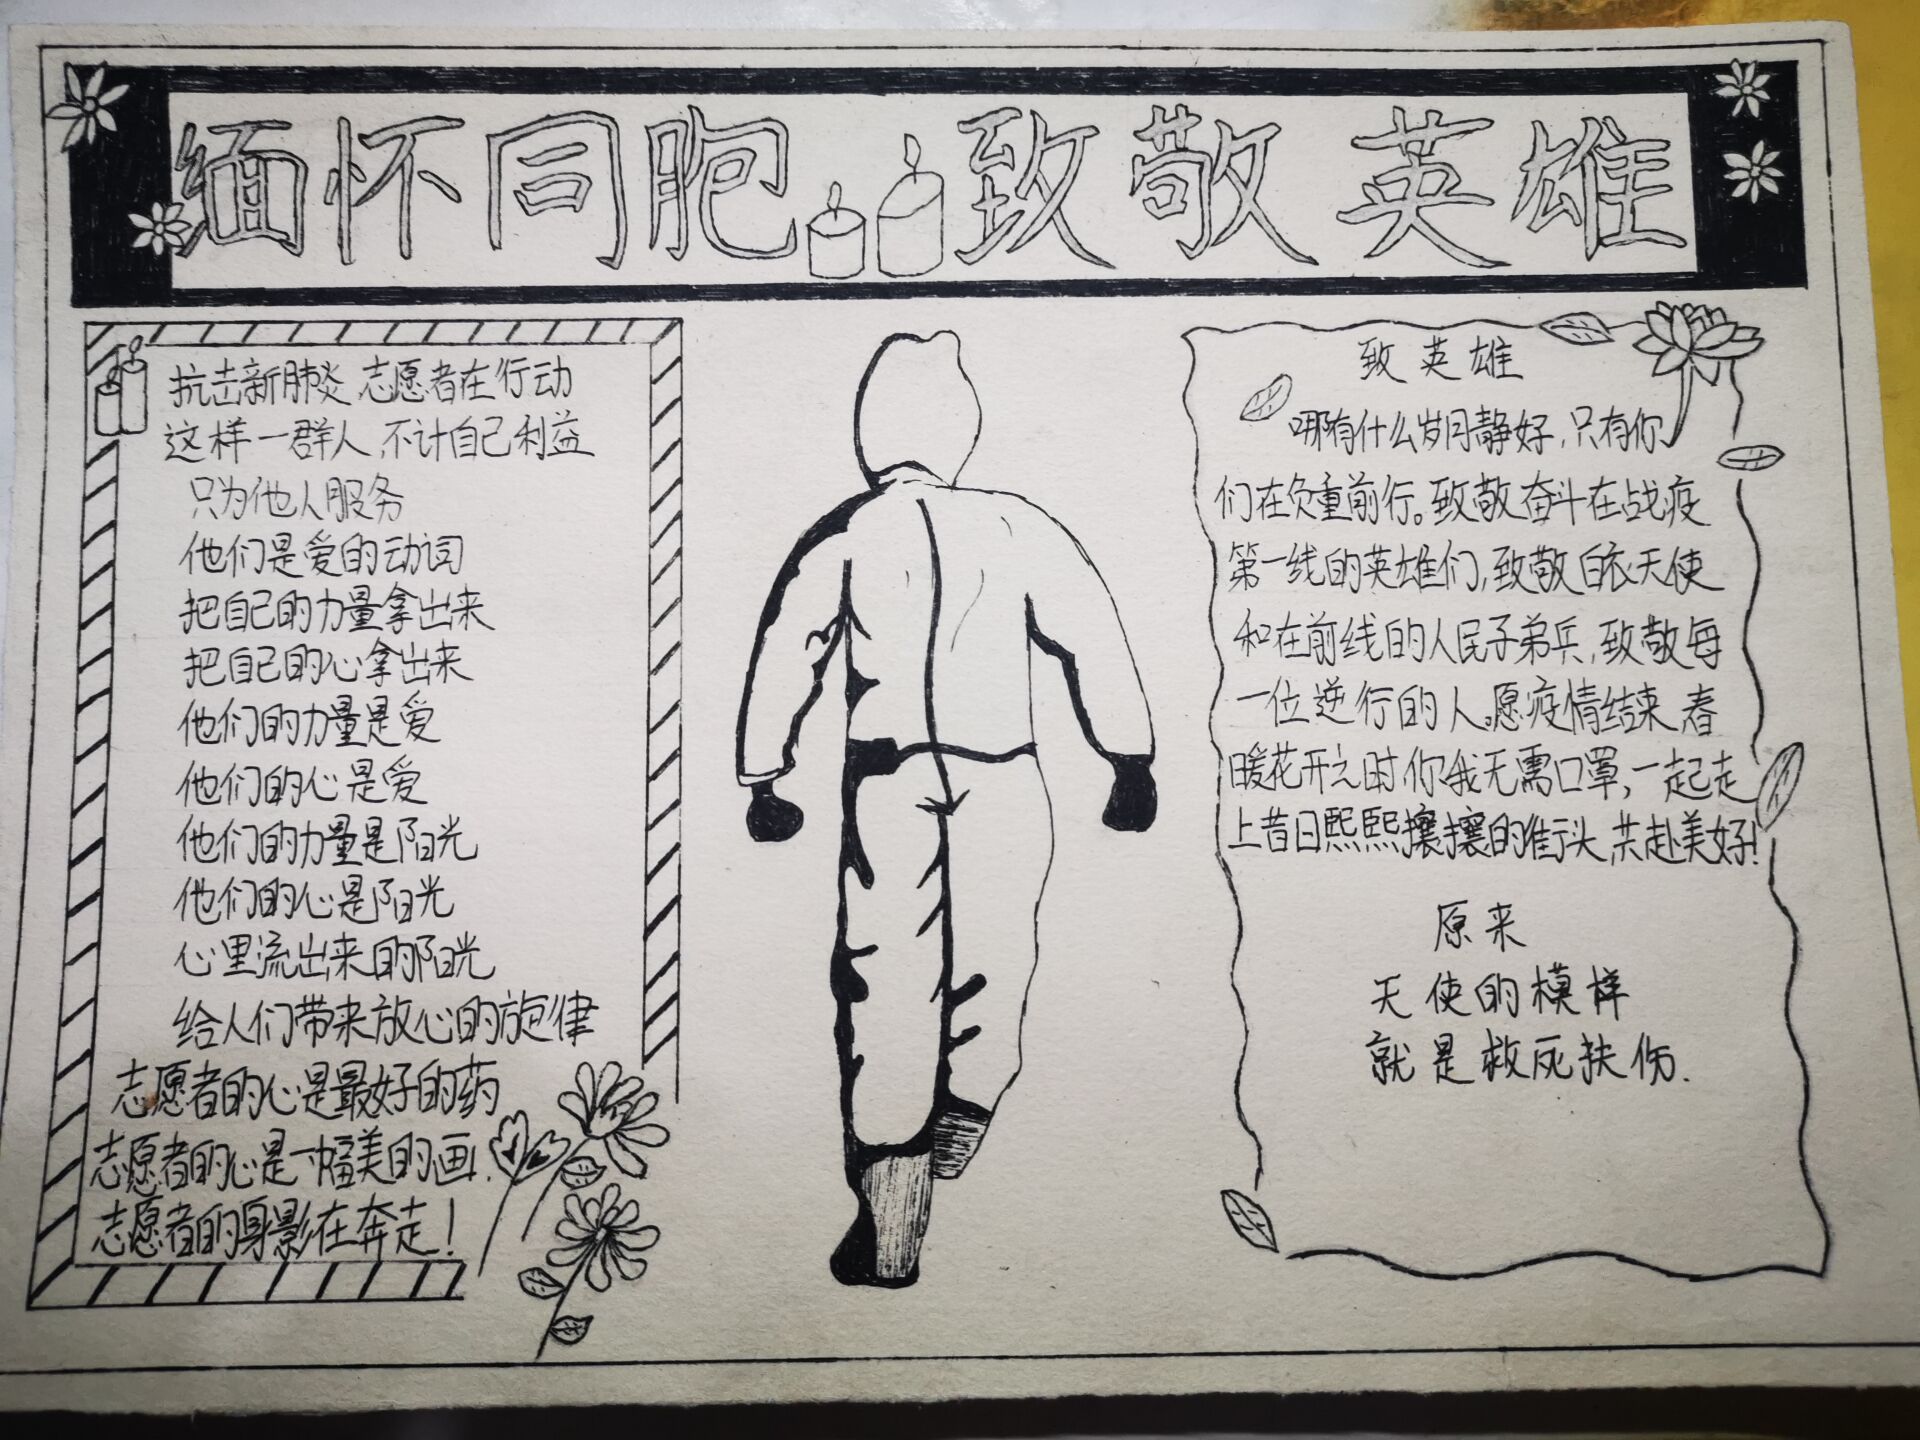 缅怀同胞 致敬英雄
抗击新肺炎,志愿者在行动
这样一群人,不计自己利益
只为他人服务
他们是爱的动词
把自己的力量拿出来
把自己的心拿出来
他们的力量是爱
他们的心是爱
他们的力量是阳光
他们的心是阳光
心里流出来的阳光
给人们带来放心的旋律
志愿者的心是最好的药
志愿者的心是一幅美的画.
志愿者的身影在奔走!
致英雄
哪有什么岁月静好,只有你
们在负重前行。致敬奋斗在战疫
第一线的英雄们,致敬白衣天使
和在前线的人民子弟兵,致敬每
一位逆行的人。愿疫情结束 春
暖花开之时你我无需口罩,一起走
上昔日熙熙攘攘的街头,共赴美好!
原来
天使的模样
就是救死扶伤.